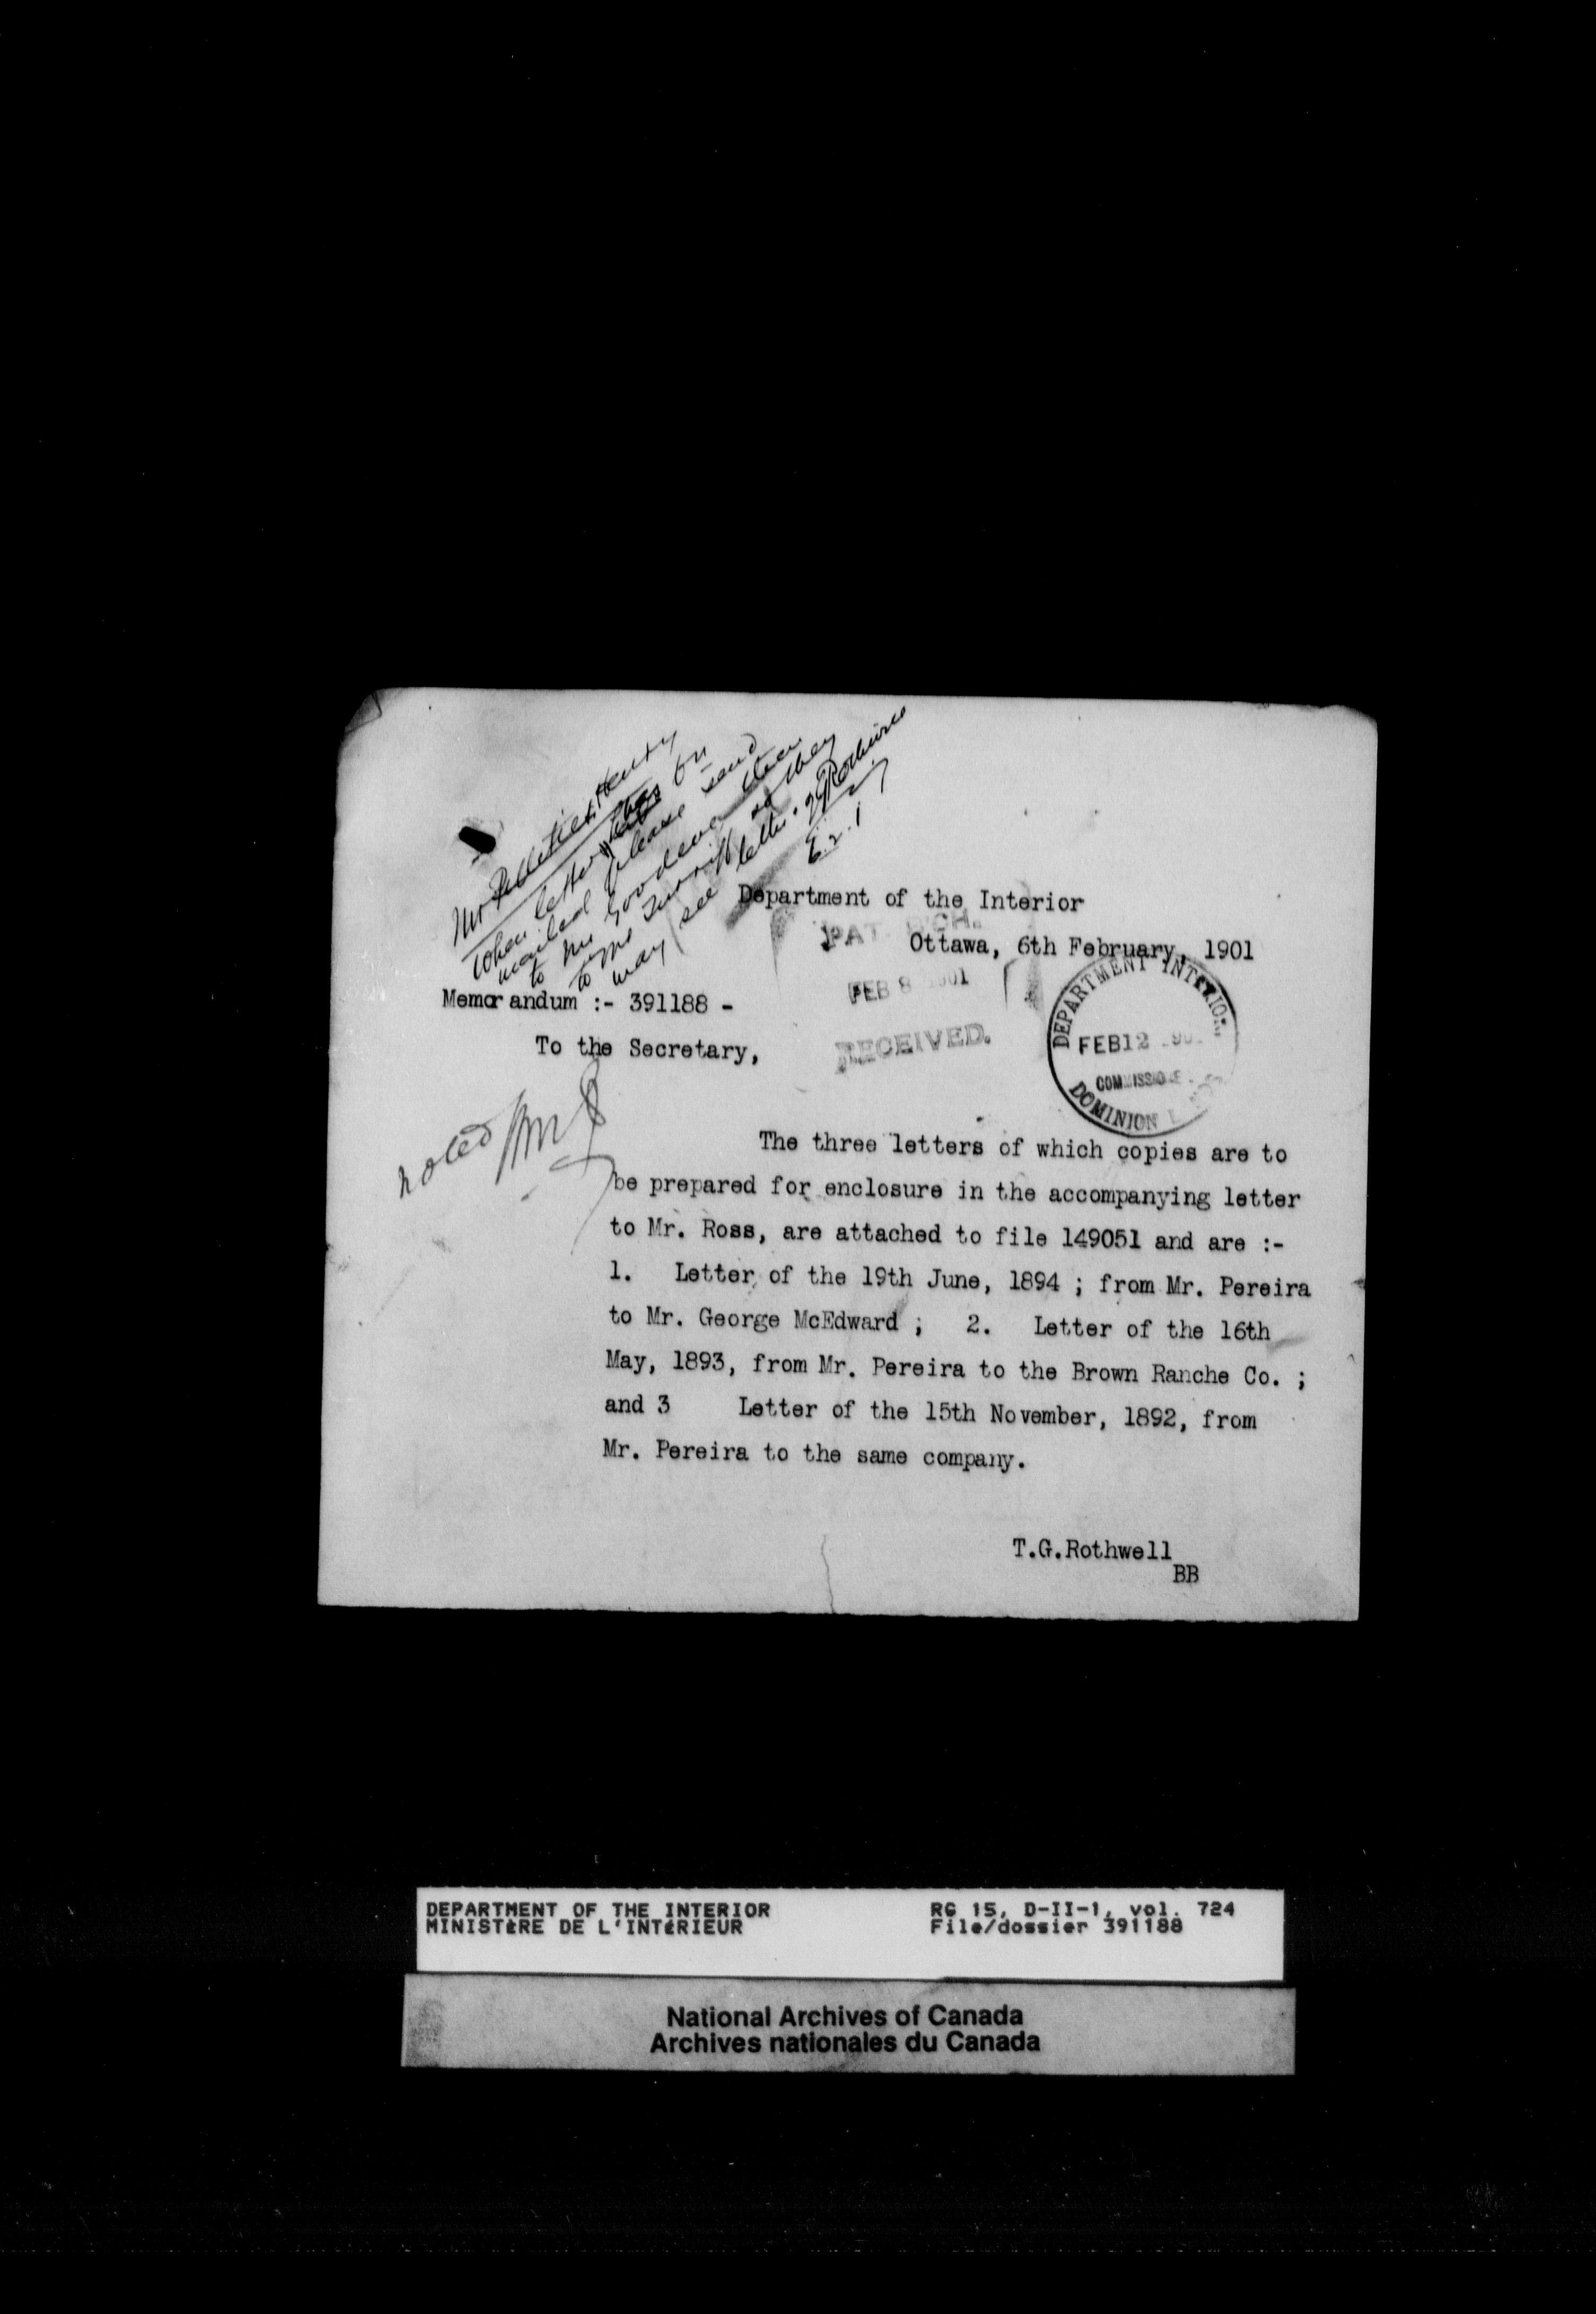 Mr Pelletier
When letter has been
mailed please send
to Mr Goodeve then
to Mr Turriff so they
may see letter.
Department of the Interior
PAT. BCH.
Ottawa, 6th February, 1901
FEB 8 1901
RECEIVED.
DEPARTMENT INTERIOR
FEB 12 190
COMMISSIONE
DOMINION L
Memorandum :- 391188 -
To the Secretary,
noted
The three letters of which copies are to
be prepared for enclosure in the accompanying letter
to Mr. Ross, are attached to file 149051 and are :-
1. Letter of the 19th June, 1894 ; from Mr. Pereira
to Mr. George McEdward ; 2. Letter of the 16th
May, 1893, from Mr. Pereira to the Brown Ranche Co. ;
and 3 Letter of the 15th November, 1892, from
Mr. Pereira to the same company.
T.G.Rothwell
BB
DEPARTMENT OF THE INTERIOR RG 15, D-II-1, vol. 724
MINISTÈRE DE L'INTÉRIEUR File/dossier 391188
National Archives of Canada
Archives nationales du Canada